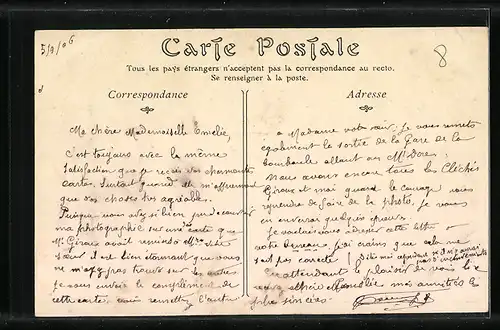 5/9/06
8
Carte Postale
Tous les pays étrangers n'acceptent pas la correspondance au recto.
Se renseigner à la poste.
Correspondance
Adresse
Ma chère Mademoiselle Emelie,
C'est toujours avec la même
satisfaction que je reçois vos charmantes
cartes. Surtout quand elles m'apprennent
que des choses très agréables.
Puisque vous avez si bien pu
ma photographie sur une carte que
Mr. Giroux avait remis à Mme votre
sœur il est bien étonnant que vous
ne m'ayez pas trouvé sur les autres.
Je vous envoie le complément de
cette carte, vous remettrez l'autre
à Madame votre sœur. Je vous remets
également la sortie de la Gare de la
Bourboule allant au Mt Dore.
Nous avons encore tous les Clichés
Giroux et moi quand le courage nous
reprendra de faire de la photo, je vous
en enverrai quelques épreuves.
Je voulais vous adresser cette lettre
votre bureau j'ai crains que cela ne
soit pas correct (dites moi cependant si il n'y aurait
pas d'inconvénients
En attendant le plaisir de vous lire
chère Mamselle mes amitiés les
plus sincères.